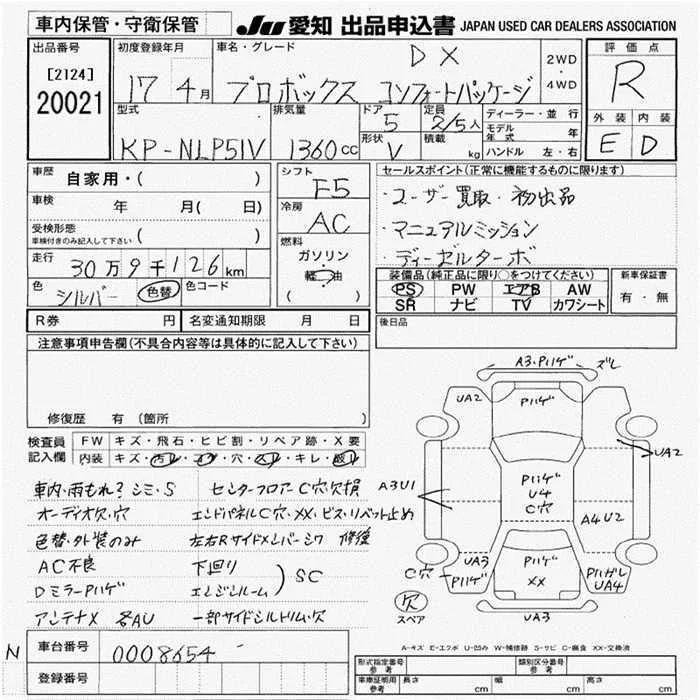 車内保管・守衛保管 JU 愛知 出品申込書 JAPAN USED CAR DEALERS ASSOCIATION
出品番号 初度登録年月 車名・グレード DX 2WD・4WD 評価点
[2124] 17 4月 プロボックス コンフォートパッケージ R
20021
型式 排気量 ドア 5 定員 2/5人 ディーラー・並行 外装 内装
モデル年式 年
KP-NLP51V 1360cc 形状 V 積載 kg ハンドル 左・右 E D
車歴 自家用・( ) シフト F5 セールスポイント(正常に機能するものに限ります)
車検 年 月( 日) 冷房 AC ・ユーザー買取・初出品
受検形態 車検付きのみ記入して下さい ( ) ・マニュアルミッション
燃料 ガソリン・軽油 ( ) ・ディーゼルターボ
走行 30万9千126km 装備品(純正品に限り○をつけてください) 新車保証書
色 シルバー 色替 色コード PS PW エアB AW 有・無
SR ナビ TV カワシート
R券 円 名変通知期限 月 日 後日品
注意事項申告欄(不具合内容等は具体的に記入して下さい)
修復歴 有(箇所 )
検査員記入欄 FW キズ・飛石・ヒビ割・リペア跡・X要
内装 キズ・汚レ・コゲ・穴・スレ・キレ・破レ
車内・雨もれ?シミ・S センターフロアーC穴欠損
オーディオ欠・穴 エンドパネルC穴・XX・ビス・リベット止め
色替・外装のみ 左右Rサイドメンバーシワ 修復
AC不良 下回り
DミラーPハゲ エンジンルーム ) SC
アンテナX 各AU 一部サイドシルトリム・欠
N 車台番号 0008654
登録番号
A3・Pハゲ ズレ
UA2 Pハゲ
UA2
A3U1 Pハゲ U4 C穴
A4U2
UA3 Pハゲ XX
C穴 Pハゲ PハガレUA4
欠 スペア UA3
A-キズ E-エクボ U-凹み W-補修跡 S-サビ C-腐食 XX-交換済
形式指定番号 参考 類別区分番号 参考
車庫証明用 参考 長さ cm 幅 cm 高さ cm